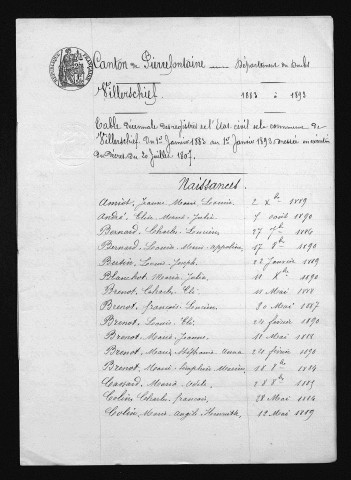 Canton de Pierrefontaine — Département du Doubs
Villerschief. 1883 à 1893
Table décennale des registres de l'état civil de la commune de
Villerschief. Du 1er Janvier 1883 au 1er Janvier 1893. Dressée en exécution
du Décret du 20 Juillet 1807.
Naissances.
Amiot, Jeanne Marie Léonie 2 Xbre 1889
André, Marie Julie 7 août 1890
Bernard, Charles 27 7bre 1884
Bernard, Léonie Marie 17 8bre 1890
Louis Joseph 22 Janvier 1889
Blanchot Maria Julia, 11 Xbre 1890
Brenot, Charles Eli 11 Mai 1888
Brenot, françois 20 Mai 1887
Brenot, Louis Eli 24 février 1890
Brenot, Marie Jeanne 11 Mai 1888
Brenot Marie Stéphanie Anna 24 février 1890
Brenot, Marie 18 8bre 1884
Cassard, Marie Adèle 28 8bre 1889
Colin Charles françois, 28 Mai 1884
Colin, Marie Angèle Henriette, 12 Mai 1889